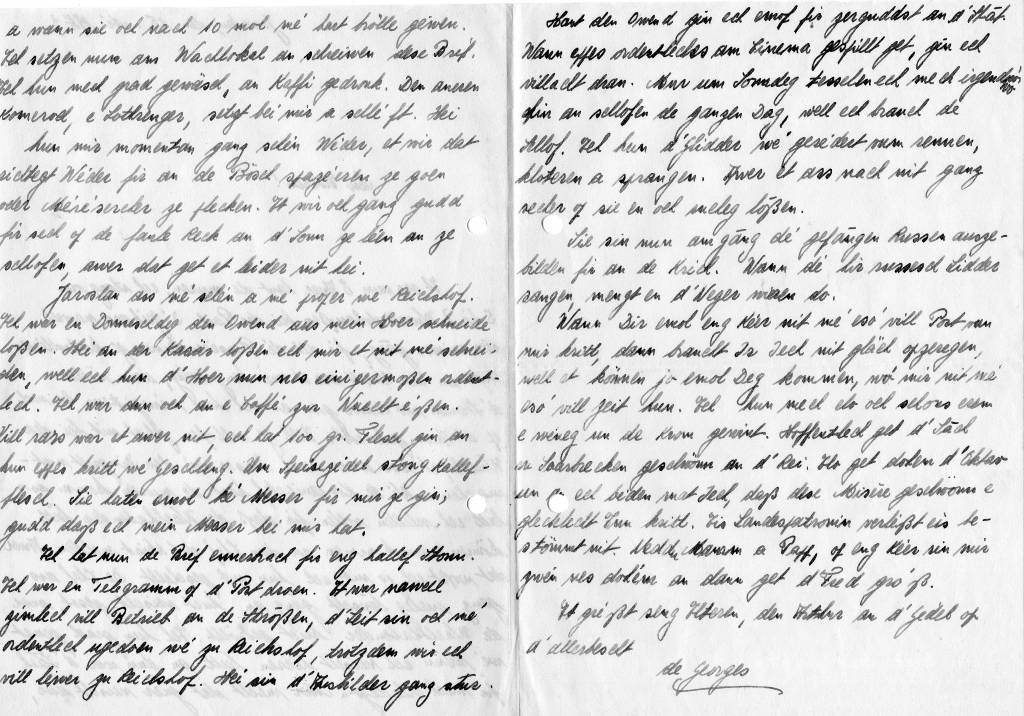 a wann sie och nach 10 mol mé hart hätte gewen.
Ech setzen nun am Wachlokal an schreiwen dese Bréf.
Ech hun mech grad gewäsd, an Kaffi gedronk. Den aneren
Komerod, e Lothrenger, setzt bei mir a seleft. Hei
hun mir momentan ganz schéin Wéder, et wir dat
richtegt Wéder fir an de Bösch spazéieren ze goen
oder ze flecken. Et wir och ganz gudd
fir sech op de faule Reck an d'Sonn ze léen an ze
schlofen, awer dat get et leider nit hei.
Jaroslau ass mé schéin a mé proper wé Reichshof.
Ech war en Donneschdeg den Owend aus mein Hoer schneide
loßen. Hei an der Kasär loßen ech mir et nit mé schnei-
den, well ech hun d'Hoer nun nes einigermoßen ordent-
lech. Ech war dun och an e Caffé zur Nuecht eßen.
Vill war et awer nit, ech hat 100 gr. Flesch gin an
hun eppes kritt wé Geschling. Um Speisezédel stong Kallef-
flesch. Sie haten emol ké Messer fir mir ze gin,
gudd daß ech mein Messer bei mir hat.
Ech hat nun de Bréf ennerbrach fir eng hallef Stonn.
Ech war en Telegramm op d'Post droen. Et war nawell
zimlech vill Betrieb an de Stroßen, d'Leit sin och mé
ordentlech ugedoen wé zu Reichshof, trotzdem wir ech
vill léwer zu Reichshof. Hei sin d'Ausbilder ganz stur.
Haut den Owend gin ech emol fir zerguddst an d'Stât.
Wann eppes ordentleches am Cinema gespillt get, gin ech
villaicht dran. Mur um Sonndeg ech mech
hin an schlofen de ganzen Dag, well ech brauch de
Schlof. Ech hun d'Glidder wé gerédert vum rennen,
kloteren a sprangen. Awer et ass nach nit ganz
secher op sie en och meleg loßen.
Sie sin nun amgäng dé gefangen Russen ausze-
bilden fir an de Krich. Wann dé hir russesch Lidder
sangen, mengt en d'Neger wieren do.
Wann Dir emol eng Kéier nit mé esó vill Post vun
mir kritt, dann braucht Ir Iech nit gläich opzeregen,
well et können jo emol Deg kommen, wó mir nit mé
esó vill Zeit hun. Ech hun mech elo och schons erem
e wéneg un de Krom gewint. Hoffentlech get d'Säch
zu Saarbrecken geschwönn an d'Rei. Elo get dohém d'Oktav
un an ech bieden mat Iech, daß dese Misère geschwönn e
glecklecht Enn kritt. Eis Landespatronin verléßt eis be-
stömmt nit. Nödd, Mamm a Papp, op eng Kéier sin mir
zwén nes dohém an dann get d'Fréd gróß.
Et gréßt seng Elteren, den an d'Gedel op
d'allerbescht
de Georges